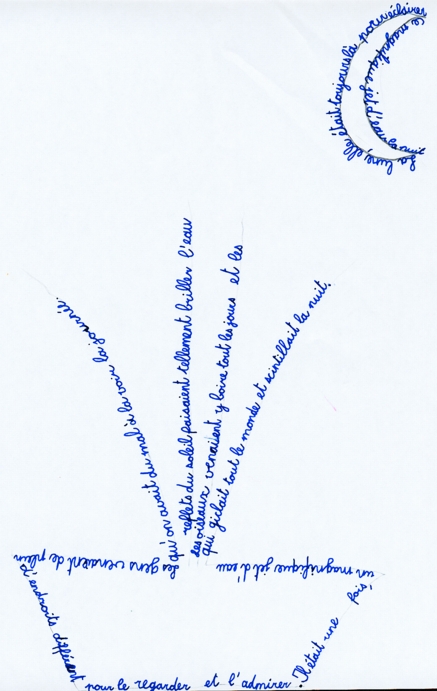 Il était une
fois
un magnifique jet d'eau
qui giclait tout le monde et scintillait la nuit.
Les oiseaux venaient y boire tout les jours et les
reflets du soleil faisaient tellement briller l'eau
qu'on avait du mal à la voir la journée.
Les gens venaient de plein
d'endroits différent
pour le regarder et l'admirer.
La lune, elle était toujours là pour éclairer
ce magnifique jet d'eau la nuit